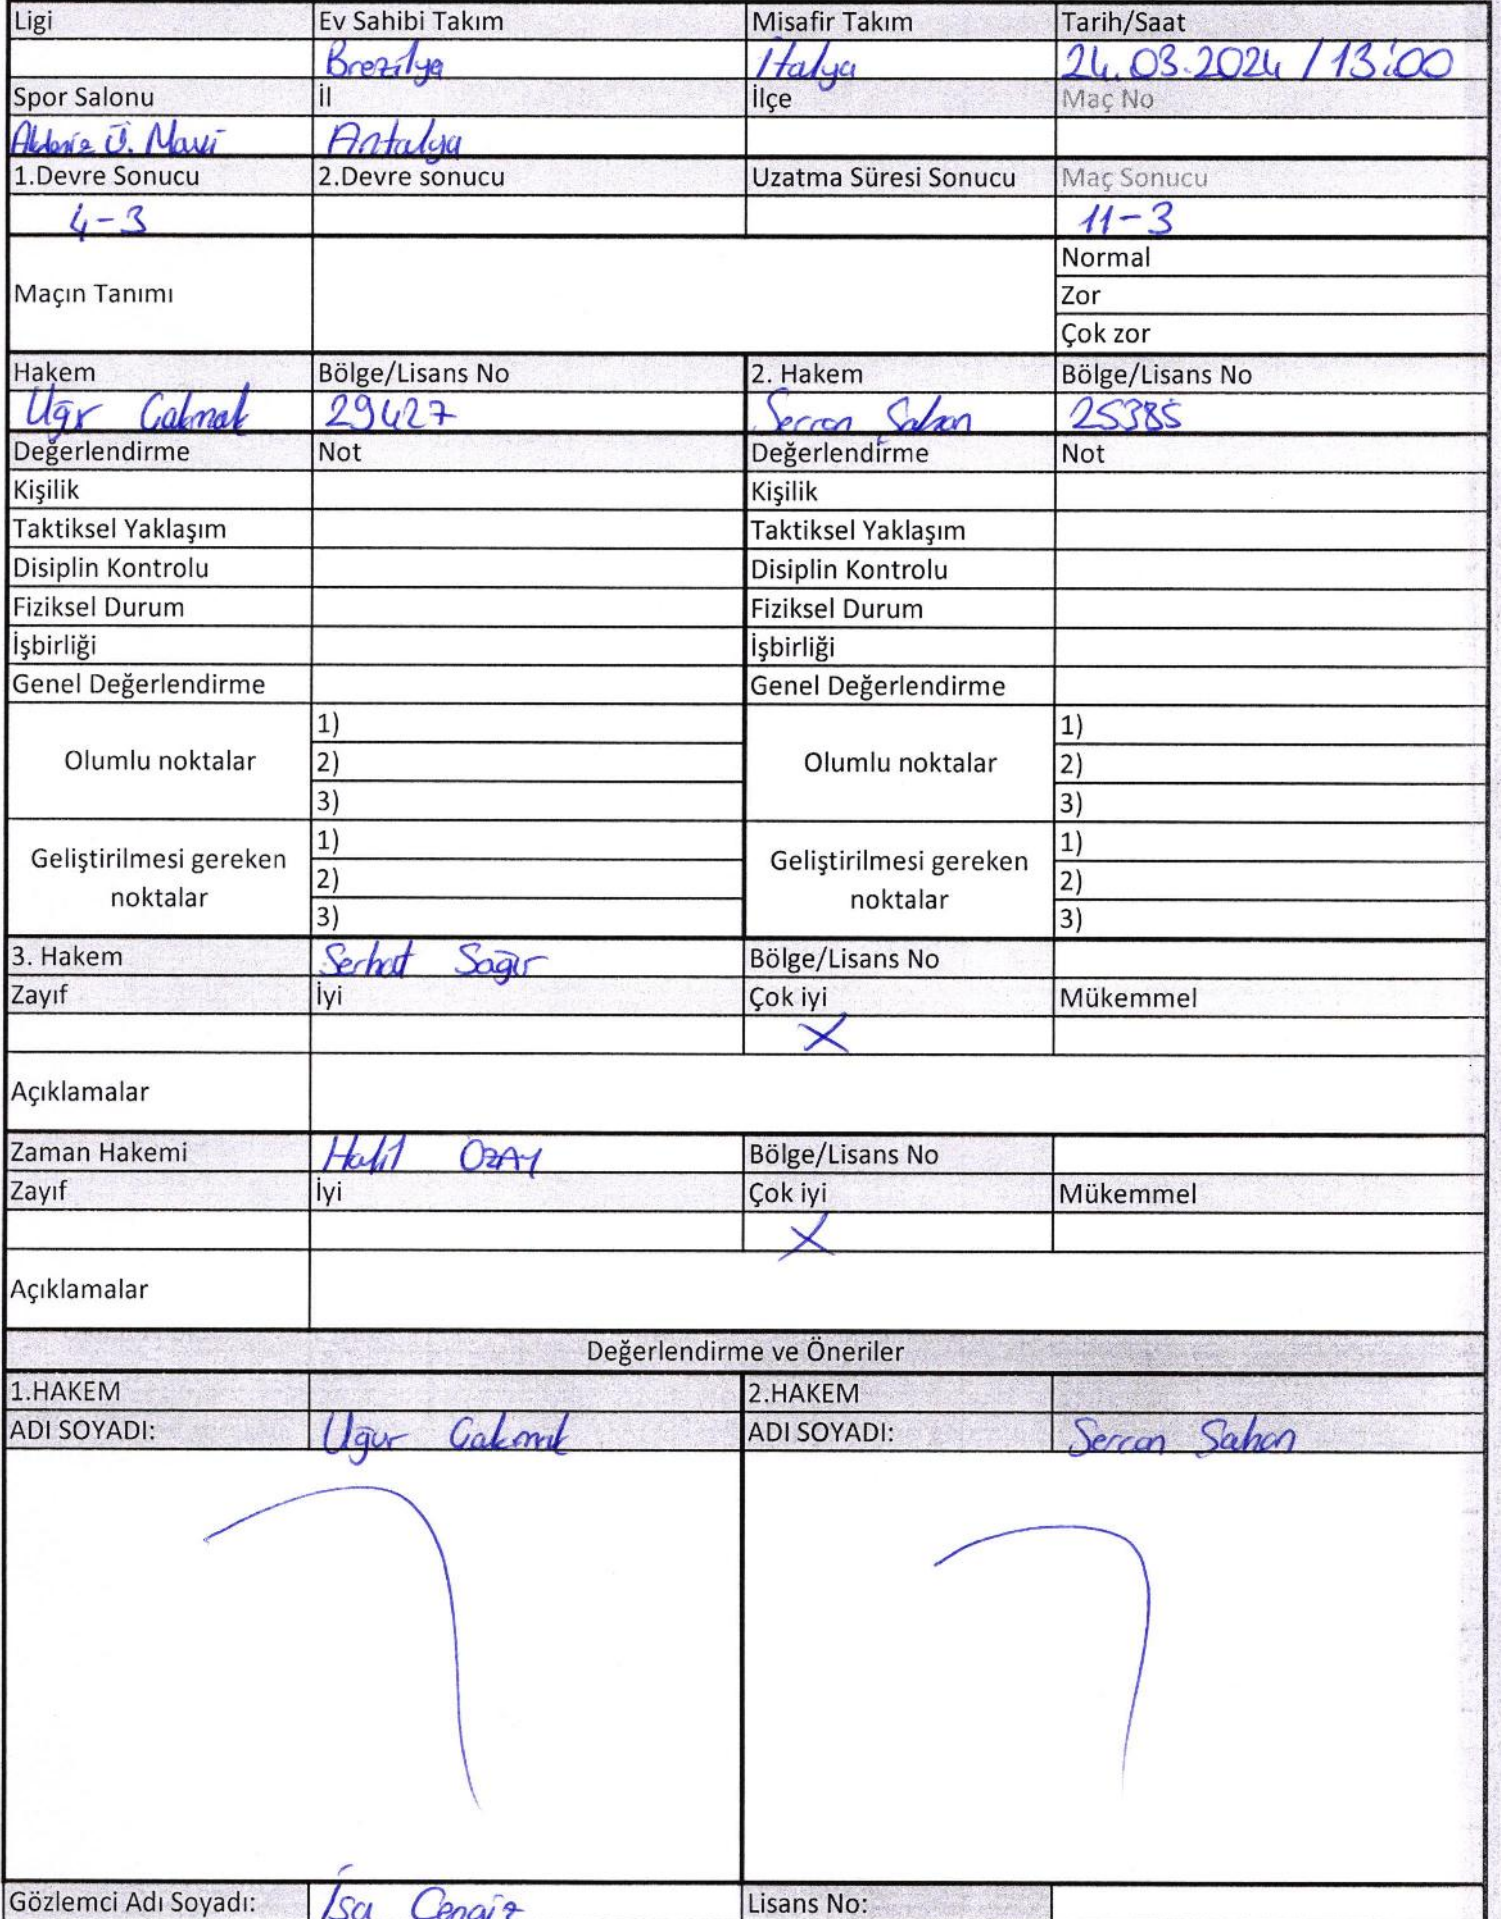 Ligi Ev Sahibi Takım Misafir Takım Tarih/Saat
Brezilya İtalya 24.03.2024 / 13:00
Spor Salonu İl İlçe Maç No
Akdeniz Ü. Mavi Antalya
1.Devre Sonucu 2.Devre sonucu Uzatma Süresi Sonucu Maç Sonucu
4-3 11-3
Normal
Maçın Tanımı Zor
Çok zor
Hakem Bölge/Lisans No 2. Hakem Bölge/Lisans No
Uğr Çakmak 29427 Sercan Şahan 25385
Değerlendirme Not Değerlendirme Not
Kişilik Kişilik
Taktiksel Yaklaşım Taktiksel Yaklaşım
Disiplin Kontrolu Disiplin Kontrolu
Fiziksel Durum Fiziksel Durum
İşbirliği İşbirliği
Genel Değerlendirme Genel Değerlendirme
1) 1)
Olumlu noktalar 2) Olumlu noktalar 2)
3) 3)
1) 1)
Geliştirilmesi gereken 2) Geliştirilmesi gereken 2)
noktalar 3) noktalar 3)
3. Hakem Serhat Sağır Bölge/Lisans No
Zayıf İyi Çok iyi Mükemmel
X
Açıklamalar
Zaman Hakemi Halil ÖZAY Bölge/Lisans No
Zayıf İyi Çok iyi Mükemmel
X
Açıklamalar
Değerlendirme ve Öneriler
1.HAKEM 2.HAKEM
ADI SOYADI: Uğur Çakmak ADI SOYADI: Sercan Şahan
Gözlemci Adı Soyadı: İsa Cengiz Lisans No: